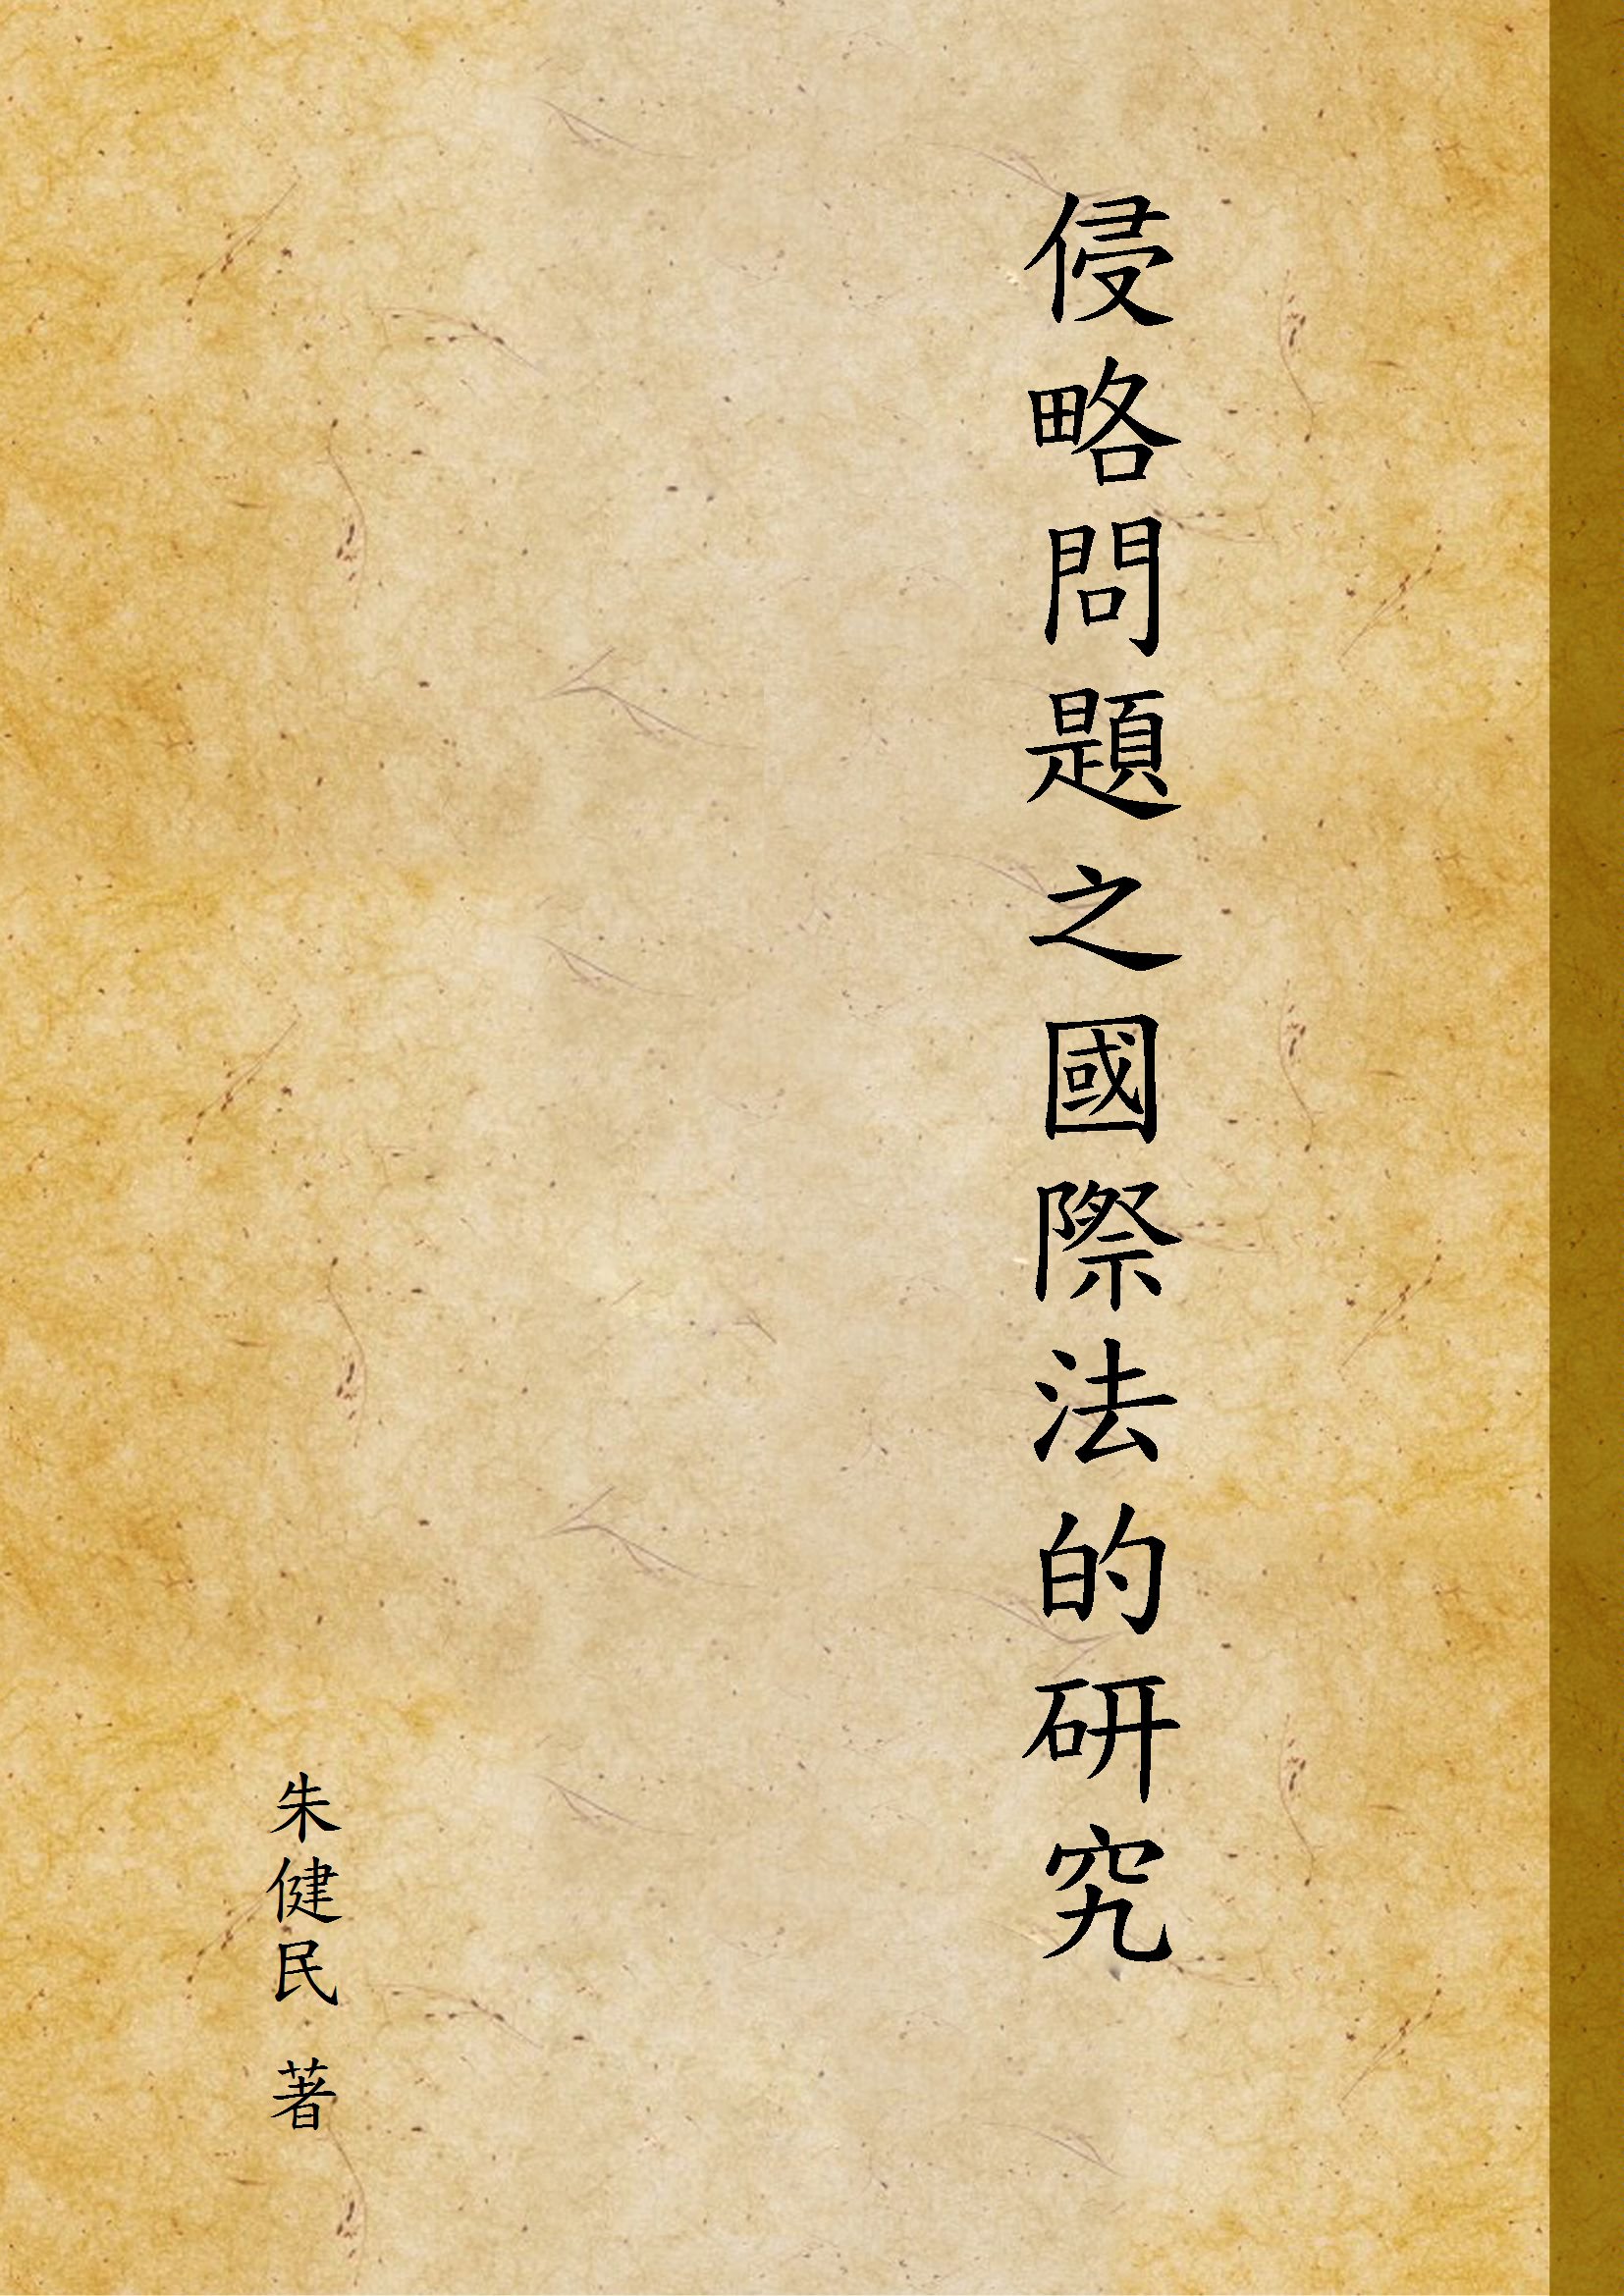 侵略問題之國際法的研究
朱健民 著